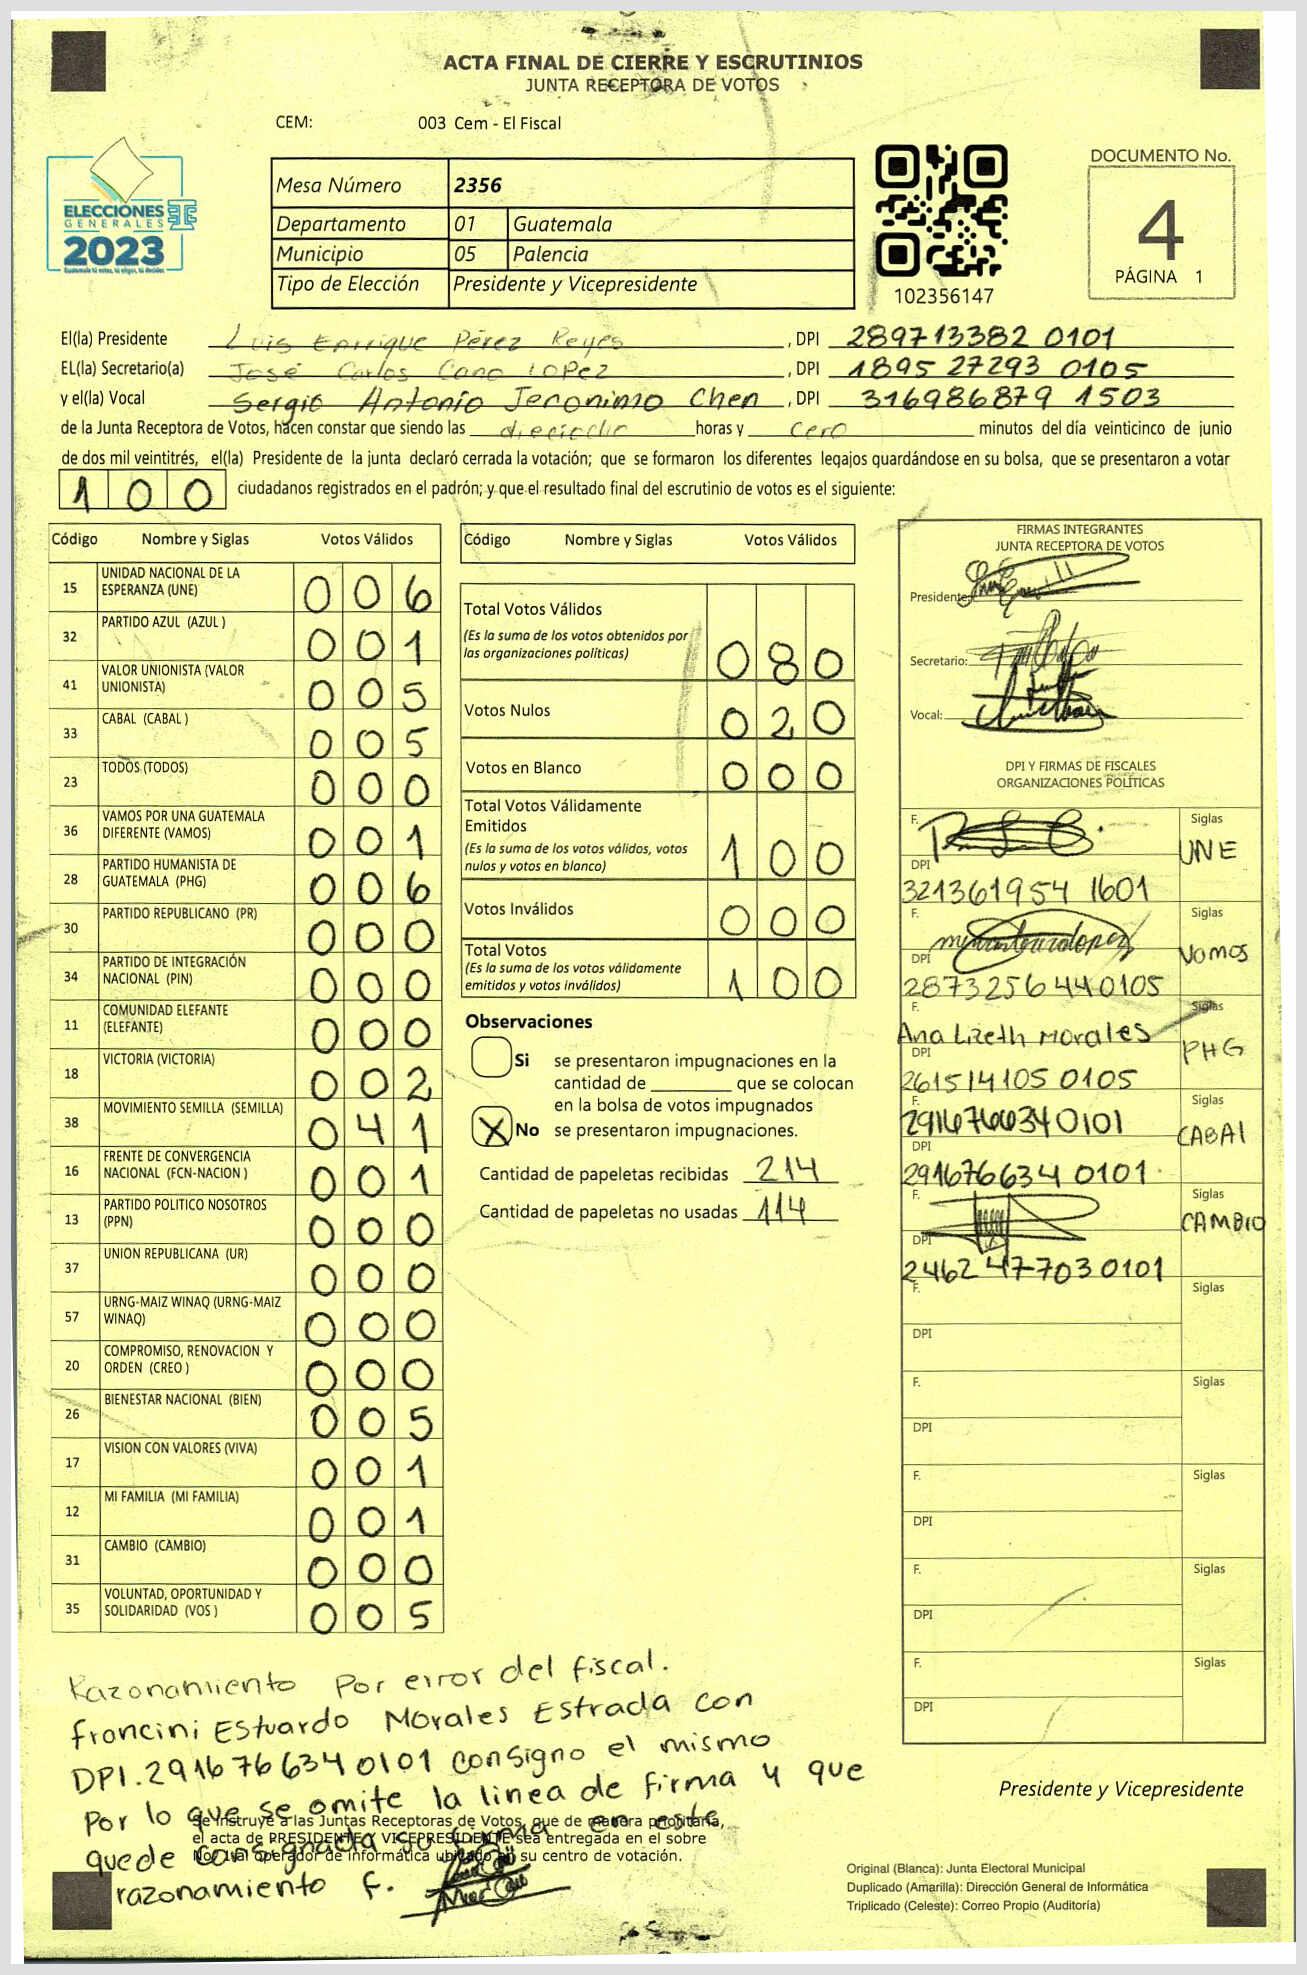 ACTA FINAL DE CIERRE Y ESCRUTINIOS
JUNTA RECEPTORA DE VOTOS
CEM: 003 Cem - El Fiscal
ELECCIONES
GENERALES
2023
Guatemala tú votas, tú eliges, tú decides
Mesa Número 2356
Departamento 01 Guatemala
Municipio 05 Palencia
Tipo de Elección Presidente y Vicepresidente
102356147
DOCUMENTO No.
4
PÁGINA 1
El(la) Presidente Luis Enrique Pérez Reyes, DPI 289713382 0101
EL(la) Secretario(a) José Carlos Cano LOPez, DPI 1895 27293 0105
y el(la) Vocal Sergio Antonio Jeronimo Chen, DPI 316986879 1503
de la Junta Receptora de Votos, hacen constar que siendo las dieciocho horas y cero minutos del día veinticinco de junio
de dos mil veintitrés, el(la) Presidente de la junta declaró cerrada la votación; que se formaron los diferentes legajos guardándose en su bolsa, que se presentaron a votar
100 ciudadanos registrados en el padrón; y que el resultado final del escrutinio de votos es el siguiente:
Código Nombre y Siglas Votos Válidos
15 UNIDAD NACIONAL DE LA ESPERANZA (UNE) 006
32 PARTIDO AZUL (AZUL ) 001
41 VALOR UNIONISTA (VALOR UNIONISTA) 005
33 CABAL (CABAL ) 005
23 TODOS (TODOS) 000
36 VAMOS POR UNA GUATEMALA DIFERENTE (VAMOS) 001
28 PARTIDO HUMANISTA DE GUATEMALA (PHG) 006
30 PARTIDO REPUBLICANO (PR) 000
34 PARTIDO DE INTEGRACIÓN NACIONAL (PIN) 000
11 COMUNIDAD ELEFANTE (ELEFANTE) 000
18 VICTORIA (VICTORIA) 002
38 MOVIMIENTO SEMILLA (SEMILLA) 041
16 FRENTE DE CONVERGENCIA NACIONAL (FCN-NACION ) 001
13 PARTIDO POLITICO NOSOTROS (PPN) 000
37 UNION REPUBLICANA (UR) 000
57 URNG-MAIZ WINAQ (URNG-MAIZ WINAQ) 000
20 COMPROMISO, RENOVACION Y ORDEN (CREO ) 000
26 BIENESTAR NACIONAL (BIEN) 005
17 VISION CON VALORES (VIVA) 001
12 MI FAMILIA (MI FAMILIA) 001
31 CAMBIO (CAMBIO) 000
35 VOLUNTAD, OPORTUNIDAD Y SOLIDARIDAD (VOS ) 005
Código Nombre y Siglas Votos Válidos
Total Votos Válidos
(Es la suma de los votos obtenidos por
las organizaciones políticas) 080
Votos Nulos 020
Votos en Blanco 000
Total Votos Válidamente
Emitidos
(Es la suma de los votos válidos, votos
nulos y votos en blanco) 100
Votos Inválidos 000
Total Votos
(Es la suma de los votos válidamente
emitidos y votos inválidos) 100
Observaciones
Si se presentaron impugnaciones en la
cantidad de ________ que se colocan
en la bolsa de votos impugnados
X No se presentaron impugnaciones.
Cantidad de papeletas recibidas 214
Cantidad de papeletas no usadas 114
FIRMAS INTEGRANTES
JUNTA RECEPTORA DE VOTOS
Presidente:
Secretario:
Vocal:
DPI Y FIRMAS DE FISCALES
ORGANIZACIONES POLÍTICAS
F. Siglas
UNE
DPI
321361954 1601
F. Siglas
Vamos
DPI
2873256440105
F. Siglas
Ana Lizeth Morales
PHG
DPI
261514105 0105
F. Siglas
2916766340101
CABAl
DPI
291676634 0101
F. Siglas
CAMBIO
DPI
2462 47703 0101
F. Siglas
DPI
F. Siglas
DPI
F. Siglas
DPI
F. Siglas
DPI
F. Siglas
DPI
Presidente y Vicepresidente
Razonamiento Por error del fiscal.
froncini Estuardo Morales Estrada con
DPI.2916766340101 consigno el mismo
Por lo que se omite la linea de firma y que
quede consignada su firma en este
razonamiento F.
Se instruye a las Juntas Receptoras de Votos, que de manera prioritaria,
el acta de PRESIDENTE Y VICEPRESIDENTE sea entregada en el sobre
No. 1 al operador de informática ubicado en su centro de votación.
Original (Blanca): Junta Electoral Municipal
Duplicado (Amarilla): Dirección General de Informática
Triplicado (Celeste): Correo Propio (Auditoría)